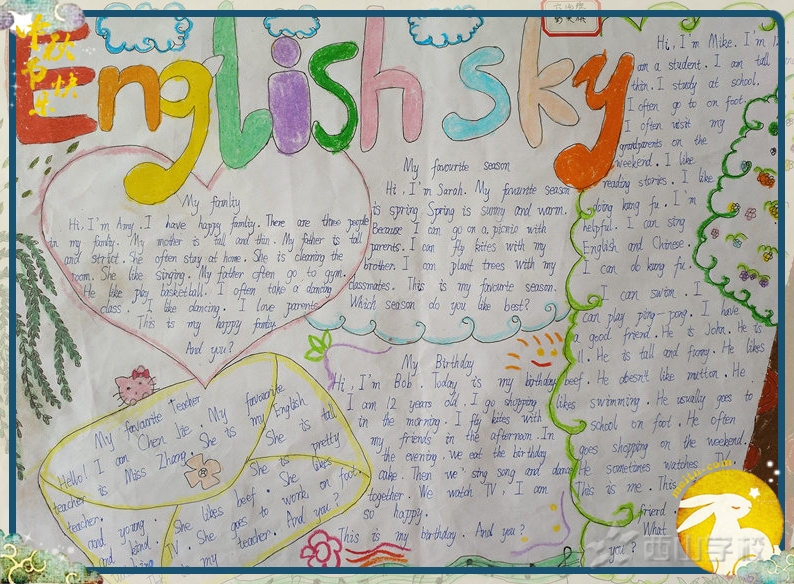 English sky
中秋
节快
乐
My family
Hi, I'm Amy. I have happy family. There are three people
in my family. My mother is tall and thin. My father is tall
and strict. She often stay at home. She is cleaning the
room. She like singing. My father often go to gym.
He like play basketball. I often take a dancing
class. I like dancing. I love parents.
This is my happy family.
And you?
My favourite season
Hi, I'm Sarah. My favourite season
is spring. Spring is sunny and warm.
Because I can go on a picnic with
parents. I can fly kites with my
brother. I can plant trees with my
classmates. This is my favourite season.
Which season do you like best?
Hi, I'm Mike. I'm 12
am a student. I am tall
thin. I study at school.
I often go to on foot.
I often visit my
grandparents on the
weekend. I like
reading stories. I like
doing kung fu. I'm
helpful. I can sing
English and Chinese.
I can do kung fu.
I can swim. I
can play ping-pong. I have
a good friend. He is John. He is
11. He is tall and funny. He likes
beef. He doesn't like mutton. He
likes swimming. He usually goes to
school on foot. He often
goes shopping on the weekend.
He sometimes watches TV.
This is me. This
friend
What
you?
My favourite teacher
Hello! I am Chen Jie. My favourite
teacher is Miss Zhang. She is my English
teacher. She is tall
and young. She is pretty
and kind. She likes beef. She likes
TV. She goes to work on foot.
my teacher. And you?
My Birthday
Hi, I'm Bob. Today is my birthday
I am 12 years old. I go shopping
in the morning. I fly kites with
my friends in the afternoon. In
the evening, we eat the birthday
cake. Then we sing song and dance
together. We watch TV, I am
so happy.
This is my birthday. And you?
西山学校